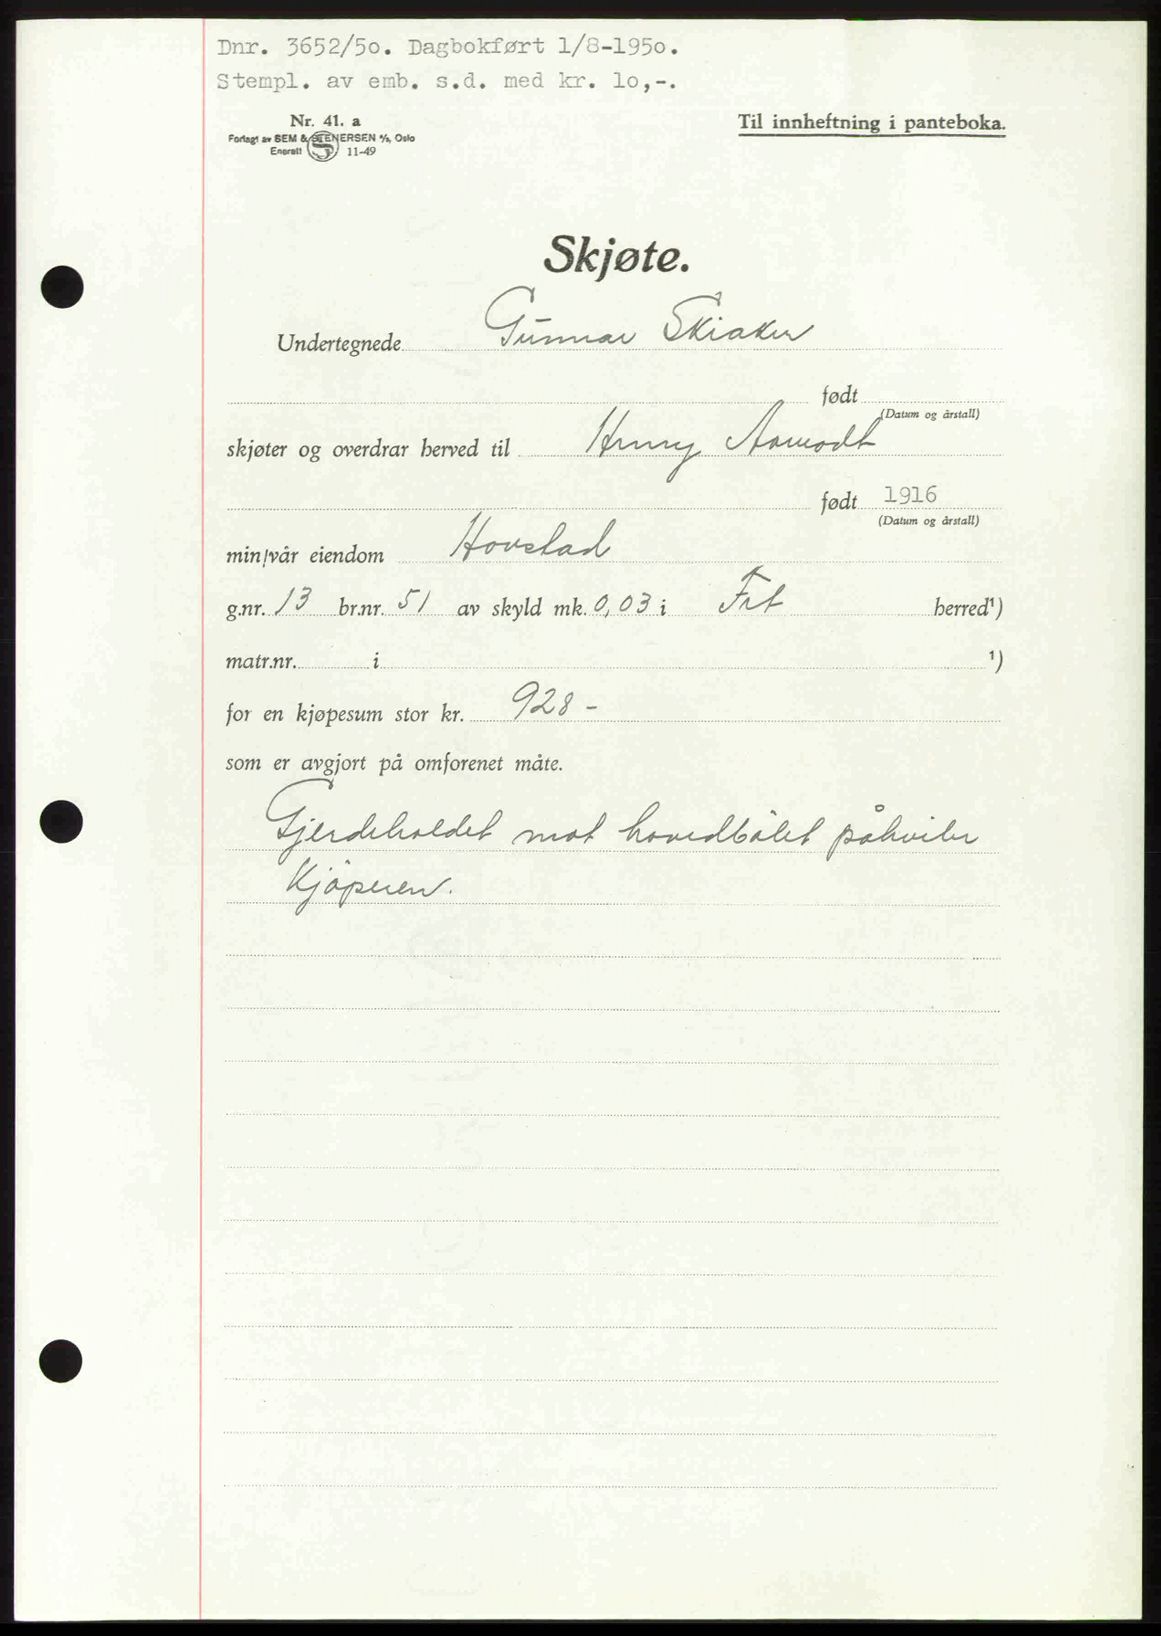 Dnr. 3652/5o. Dagbokført 1/8-195o.
Stempl. av emb. s.d. med kr. lo,-.
Nr. 41. a
Forlagt av SEM & STENERSEN A/S, Oslo
Enerett 11-49
Til innheftning i panteboka.
Skjøte.
Undertegnede Gunnar Skiaker
født
(Datum og årstall)
skjøter og overdrar herved til Henry Aamodt
født 1916
(Datum og årstall)
min/vår eiendom Hovstad
g.nr. 13 br.nr. 51 av skyld mk. 0,03 i Fet herred¹)
matr.nr. i ¹)
for en kjøpesum stor kr. 928 -
som er avgjort på omforenet måte.
Gjerdeholdet mot hovedbølet påhviler
Kjøperen.